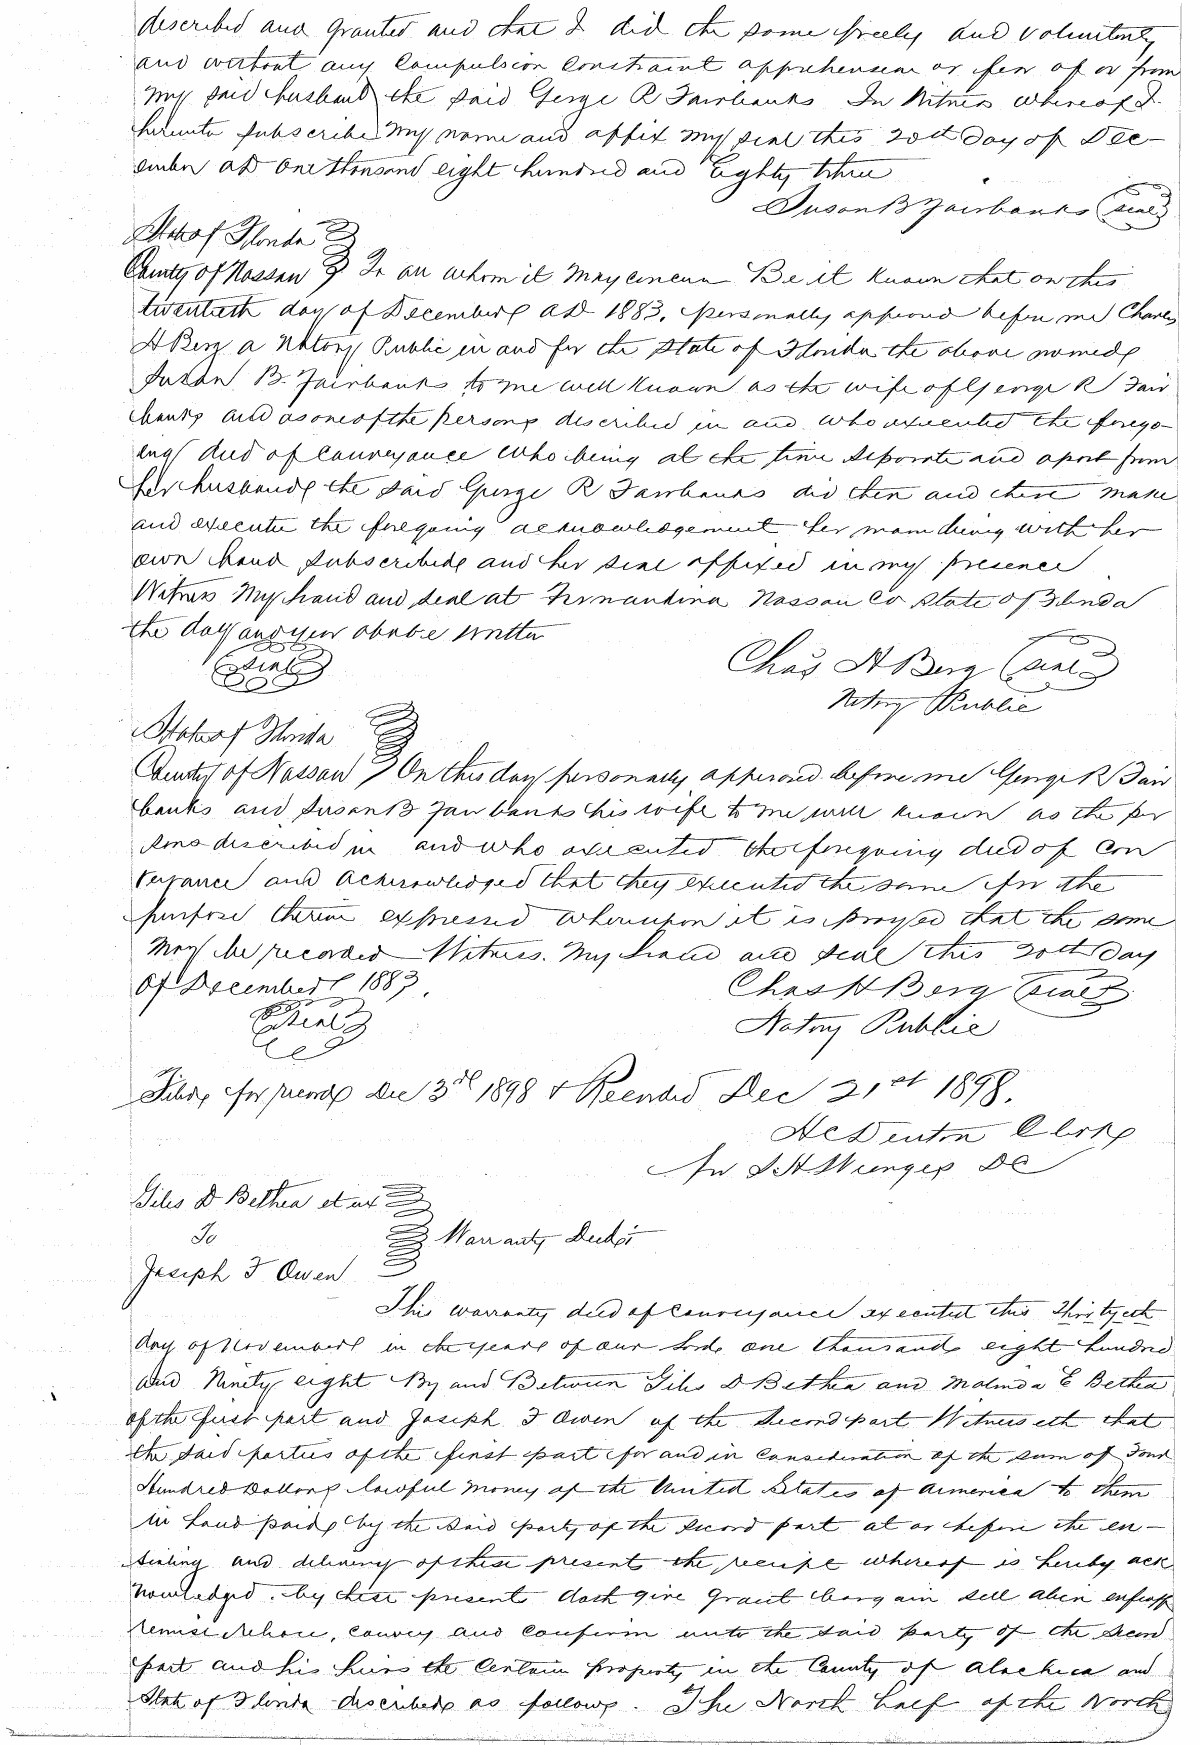 described and granted and that I did the same freely and voluntenty
and without any Compulsion Constraint apprehension or fear of or from
my said husband the said George R Fairbanks In Witness whereof I
hereunto Subscribe my name and affix my seal this 20th day of Dec-
ember AD One thousand eight hundred and Eighty three
Susan B Fairbanks (seal)
State of Florida
County of Nassau To all whom it may concern Be it Known that on this
twentieth day of December AD 1883, personally appeared before me Charles
H Berg a Notory Public in and for the State of Florida the above named
Susan B. Fairbanks to me well Known as the wife of George R Fair
banks and as one of the persons described in and who executed the forego-
ing deed of Conveyance who being at the time Seperate and apart from
her husband the said George R Fairbanks did then and there make
and execute the foregoing acknowledgement her name being with her
own hand Subscribed and her seal affixed in my presence
Witness My hand and seal at Fernandina Nassau Co State of Florida
the day and year above written
(Seal)
Chas H Berg (seal)
Notory Public
State of Florida
County of Nassau On this day personally appeared before me George R Fair
banks and Susan B Fairbanks his wife to me well Known as the per
sons described in and who executed the foregoing deed of Con
veyance and acknowledged that they executed the same for the
purpose therein expressed whereupon it is prayed that the same
may be recorded Witness. My hand and seal this 20th day
of December 1883.
Chas H Berg (seal)
(Seal)
Notory Public
Filed for record Dec 3rd 1898 & Recorded Dec 21st 1898.
H C Denton Clerk
DC
Giles D Bethea et ux
To
Warranty Deed
Joseph F Owen
This warranty deed of Conveyance executed this Thirtyeth
day of November in the year of our Lord one thousand eight hundred
and Ninety eight By and Between Giles D Bethea and Malinda E Bethea
of the first part and Joseph F Owen of the Second part Witnesseth that
the said parties of the first part for and in Consideration of the sum of Four
Hundred Dollars lawful money of the United States of America to them
in hand paid by the said party of the second part at or before the en-
sealing and delivery of these present the receipt whereof is hereby ack
nowledged. by these presents doth give grant bargain sell alien enfeoff
remise release, convey and confirm unto the said party of the Second
part and his heirs the Certain property in the County of Alachua and
State of Florida described as follows. The North half of the North